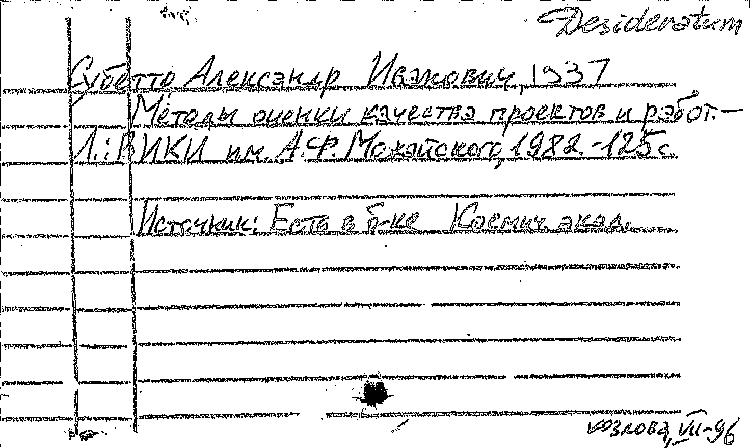 Desideratum
Субетто Александр Иванович, 1937
Методы оценки качества проектов и работ.—
Л.: ВИКИ им. А.Ф. Можайского, 1982.-125с.
Источник: Есть в б-ке Космич. акад.
козлова, VII-96